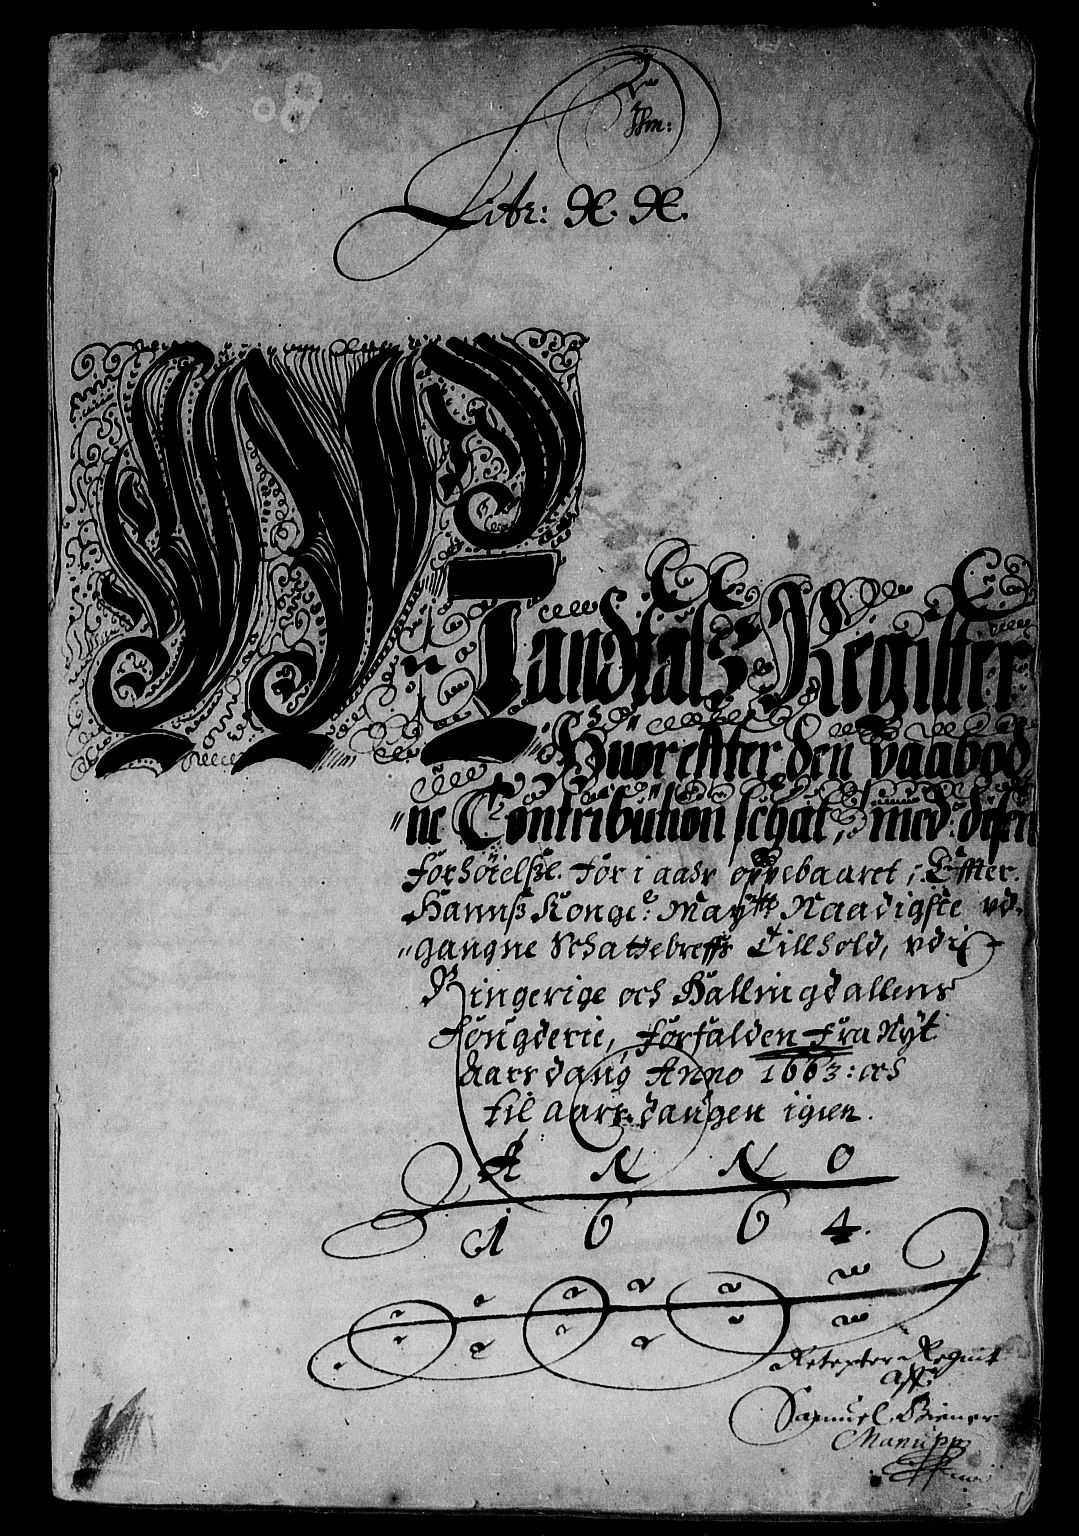 Litr: X. X.
Mandtals Register
Huor effter den paabød
"ne Contribution schat, med: disen
forhöielsze for i aadr oppebaaret, Effter
Hannsz Konge: Maytts Naadigste vd-
"gangne Schattebreffs Tillhold, vdi
Ringerige och Hallingdallens
fougderie, forfalden fra Nyt
Aars dang Anno 1663: och
til aars dangen igien.
A N N O
1 6 6 4.
Samuel
Manupp